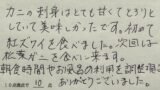 カニの刺身はとても甘くてとろりと
していて美味しかったです。初めて
紅ズワイを食べました。次回は
松葉ガニを食べに来ます。
朝食時間やお風呂の利用を調整頂き
ありがとうございました。
10